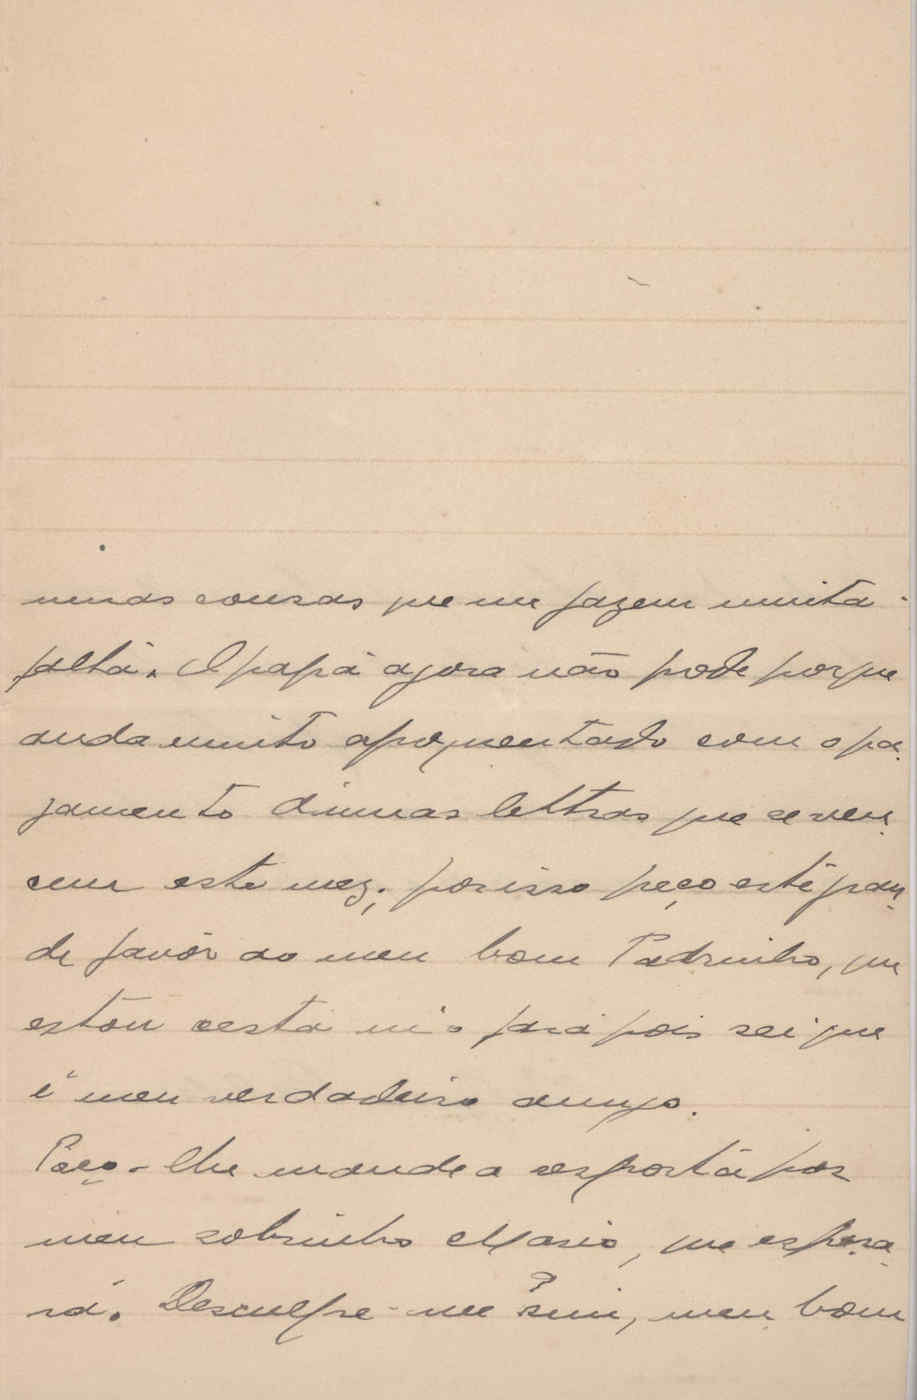 umas cousas que me fazem muita
falta. O papá agora não pode porque
anda muito apoquentado com o pa-
gamento d'umas lettras que se ven-
cem este mez; por isso peço este gran-
de favôr ao meu bom Padrinho, que
estou certa m'o fará pois sei que
é meu verdadeiro amigo.
Peço-lhe mande a resposta por
meu sobrinho Mario, que espera-
rá. Desculpe-me sim, meu bom